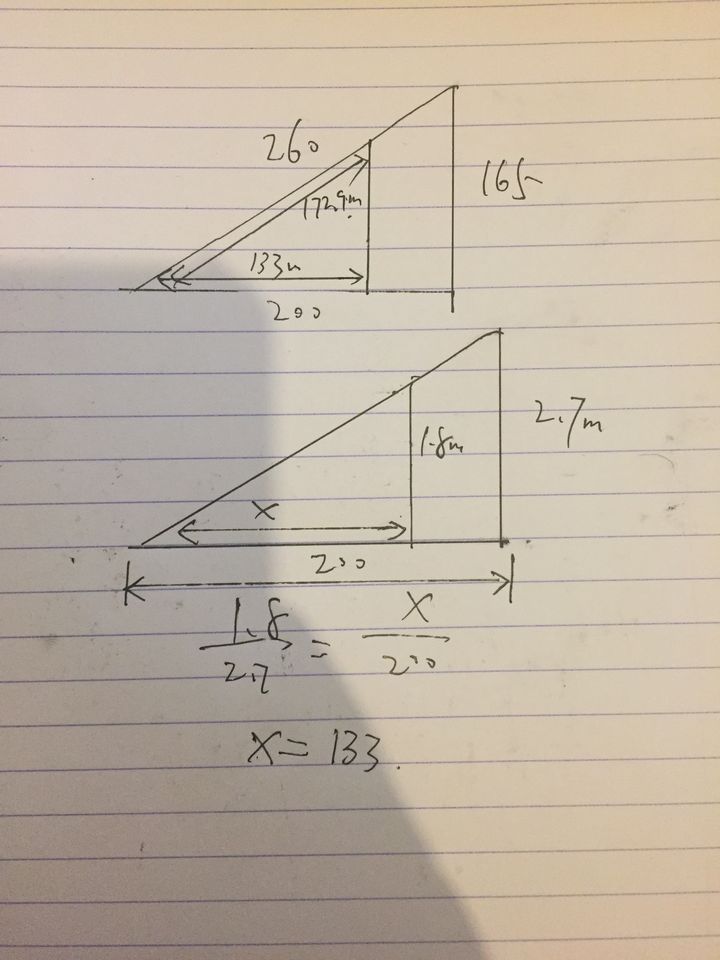 260
165
172.9m
133m
200
2.7m
1.8m
x
200
1.8/2.7 = x/200
x = 133.